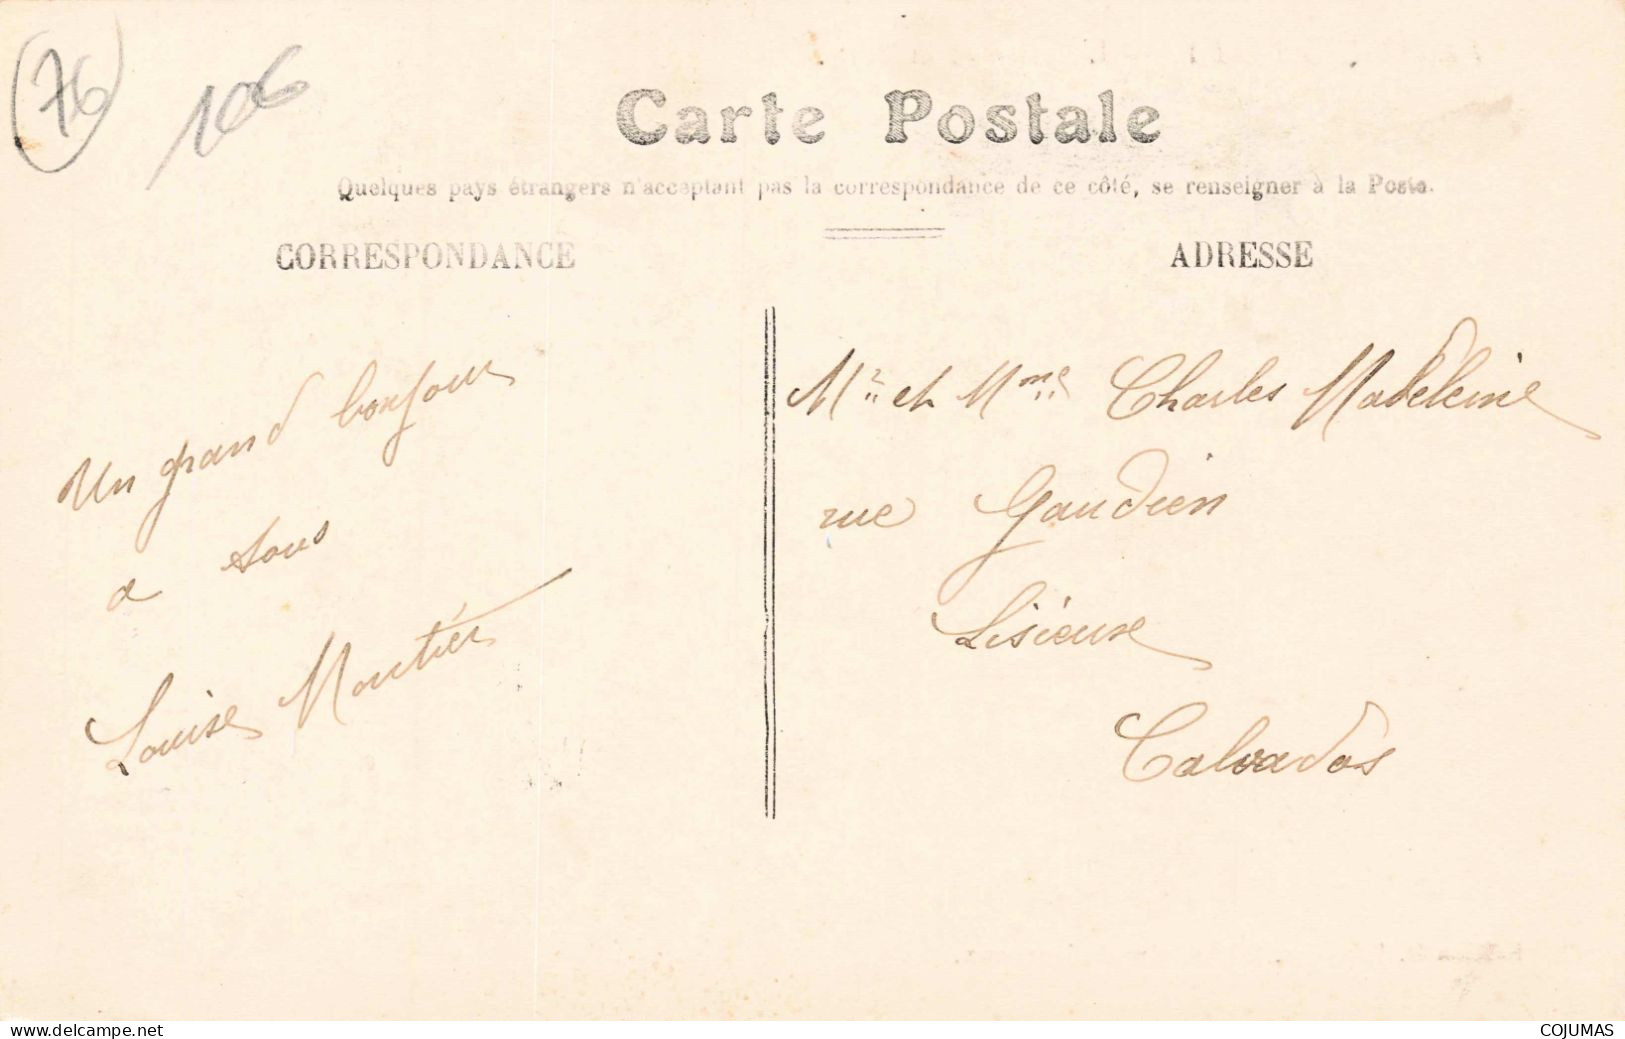 76
106
Carte Postale
Quelques pays étrangers n'acceptant pas la correspondance de ce côté, se renseigner à la Poste.
CORRESPONDANCE
ADRESSE
Un grand bonjour
a tous
Louise Moutier
Mr et Mme Charles Madeleine
rue Gaudien
Lisieuse
Calvados
www.delcampe.net
COJUMAS